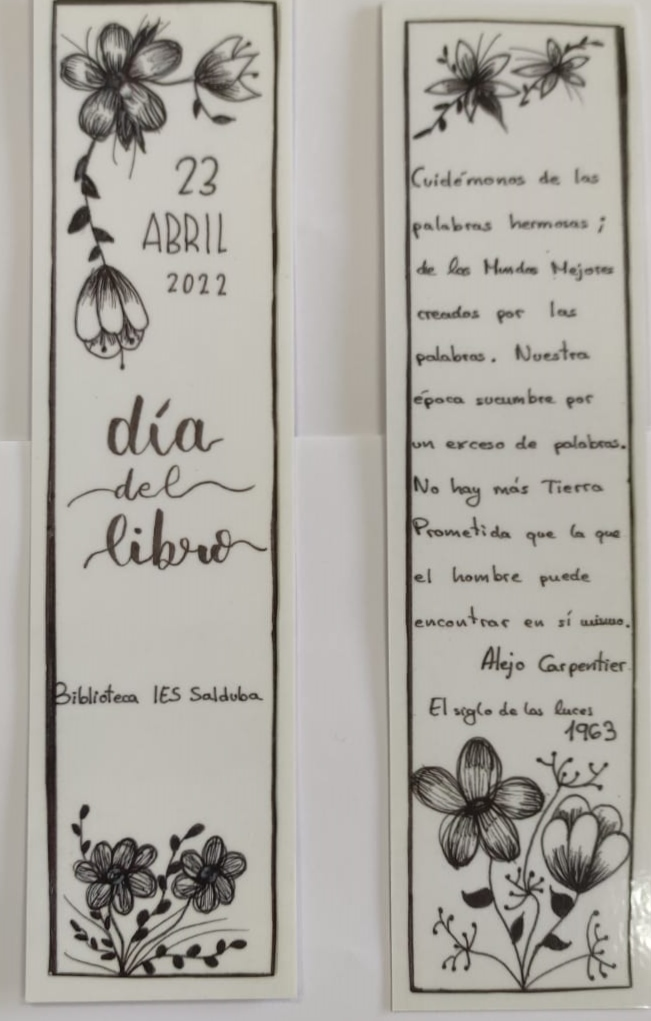 23
ABRIL
2022
día
del
libro
Biblioteca IES Salduba
Cuidémonos de las
palabras hermosas;
de los Mundos Mejores
creados por las
palabras. Nuestra
época sucumbre por
un exceso de palabras.
No hay más Tierra
Prometida que la que
el hombre puede
encontrar en sí mismo.
Alejo Carpentier
El siglo de las luces
1963